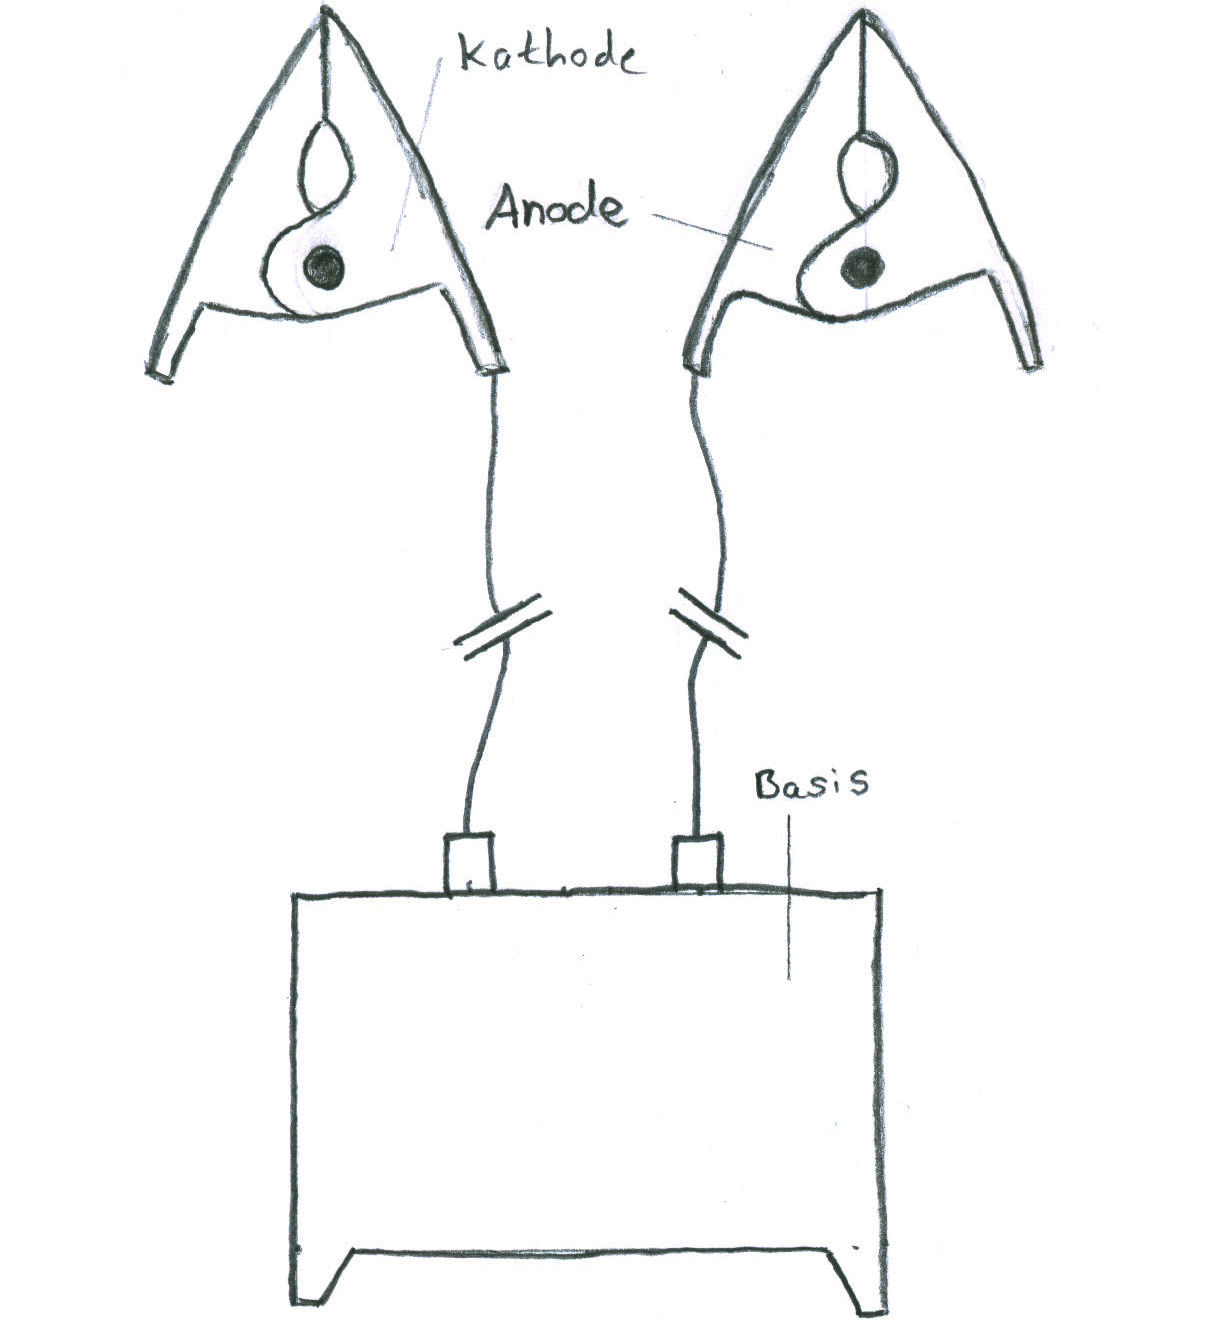 Kathode
Anode
Basis